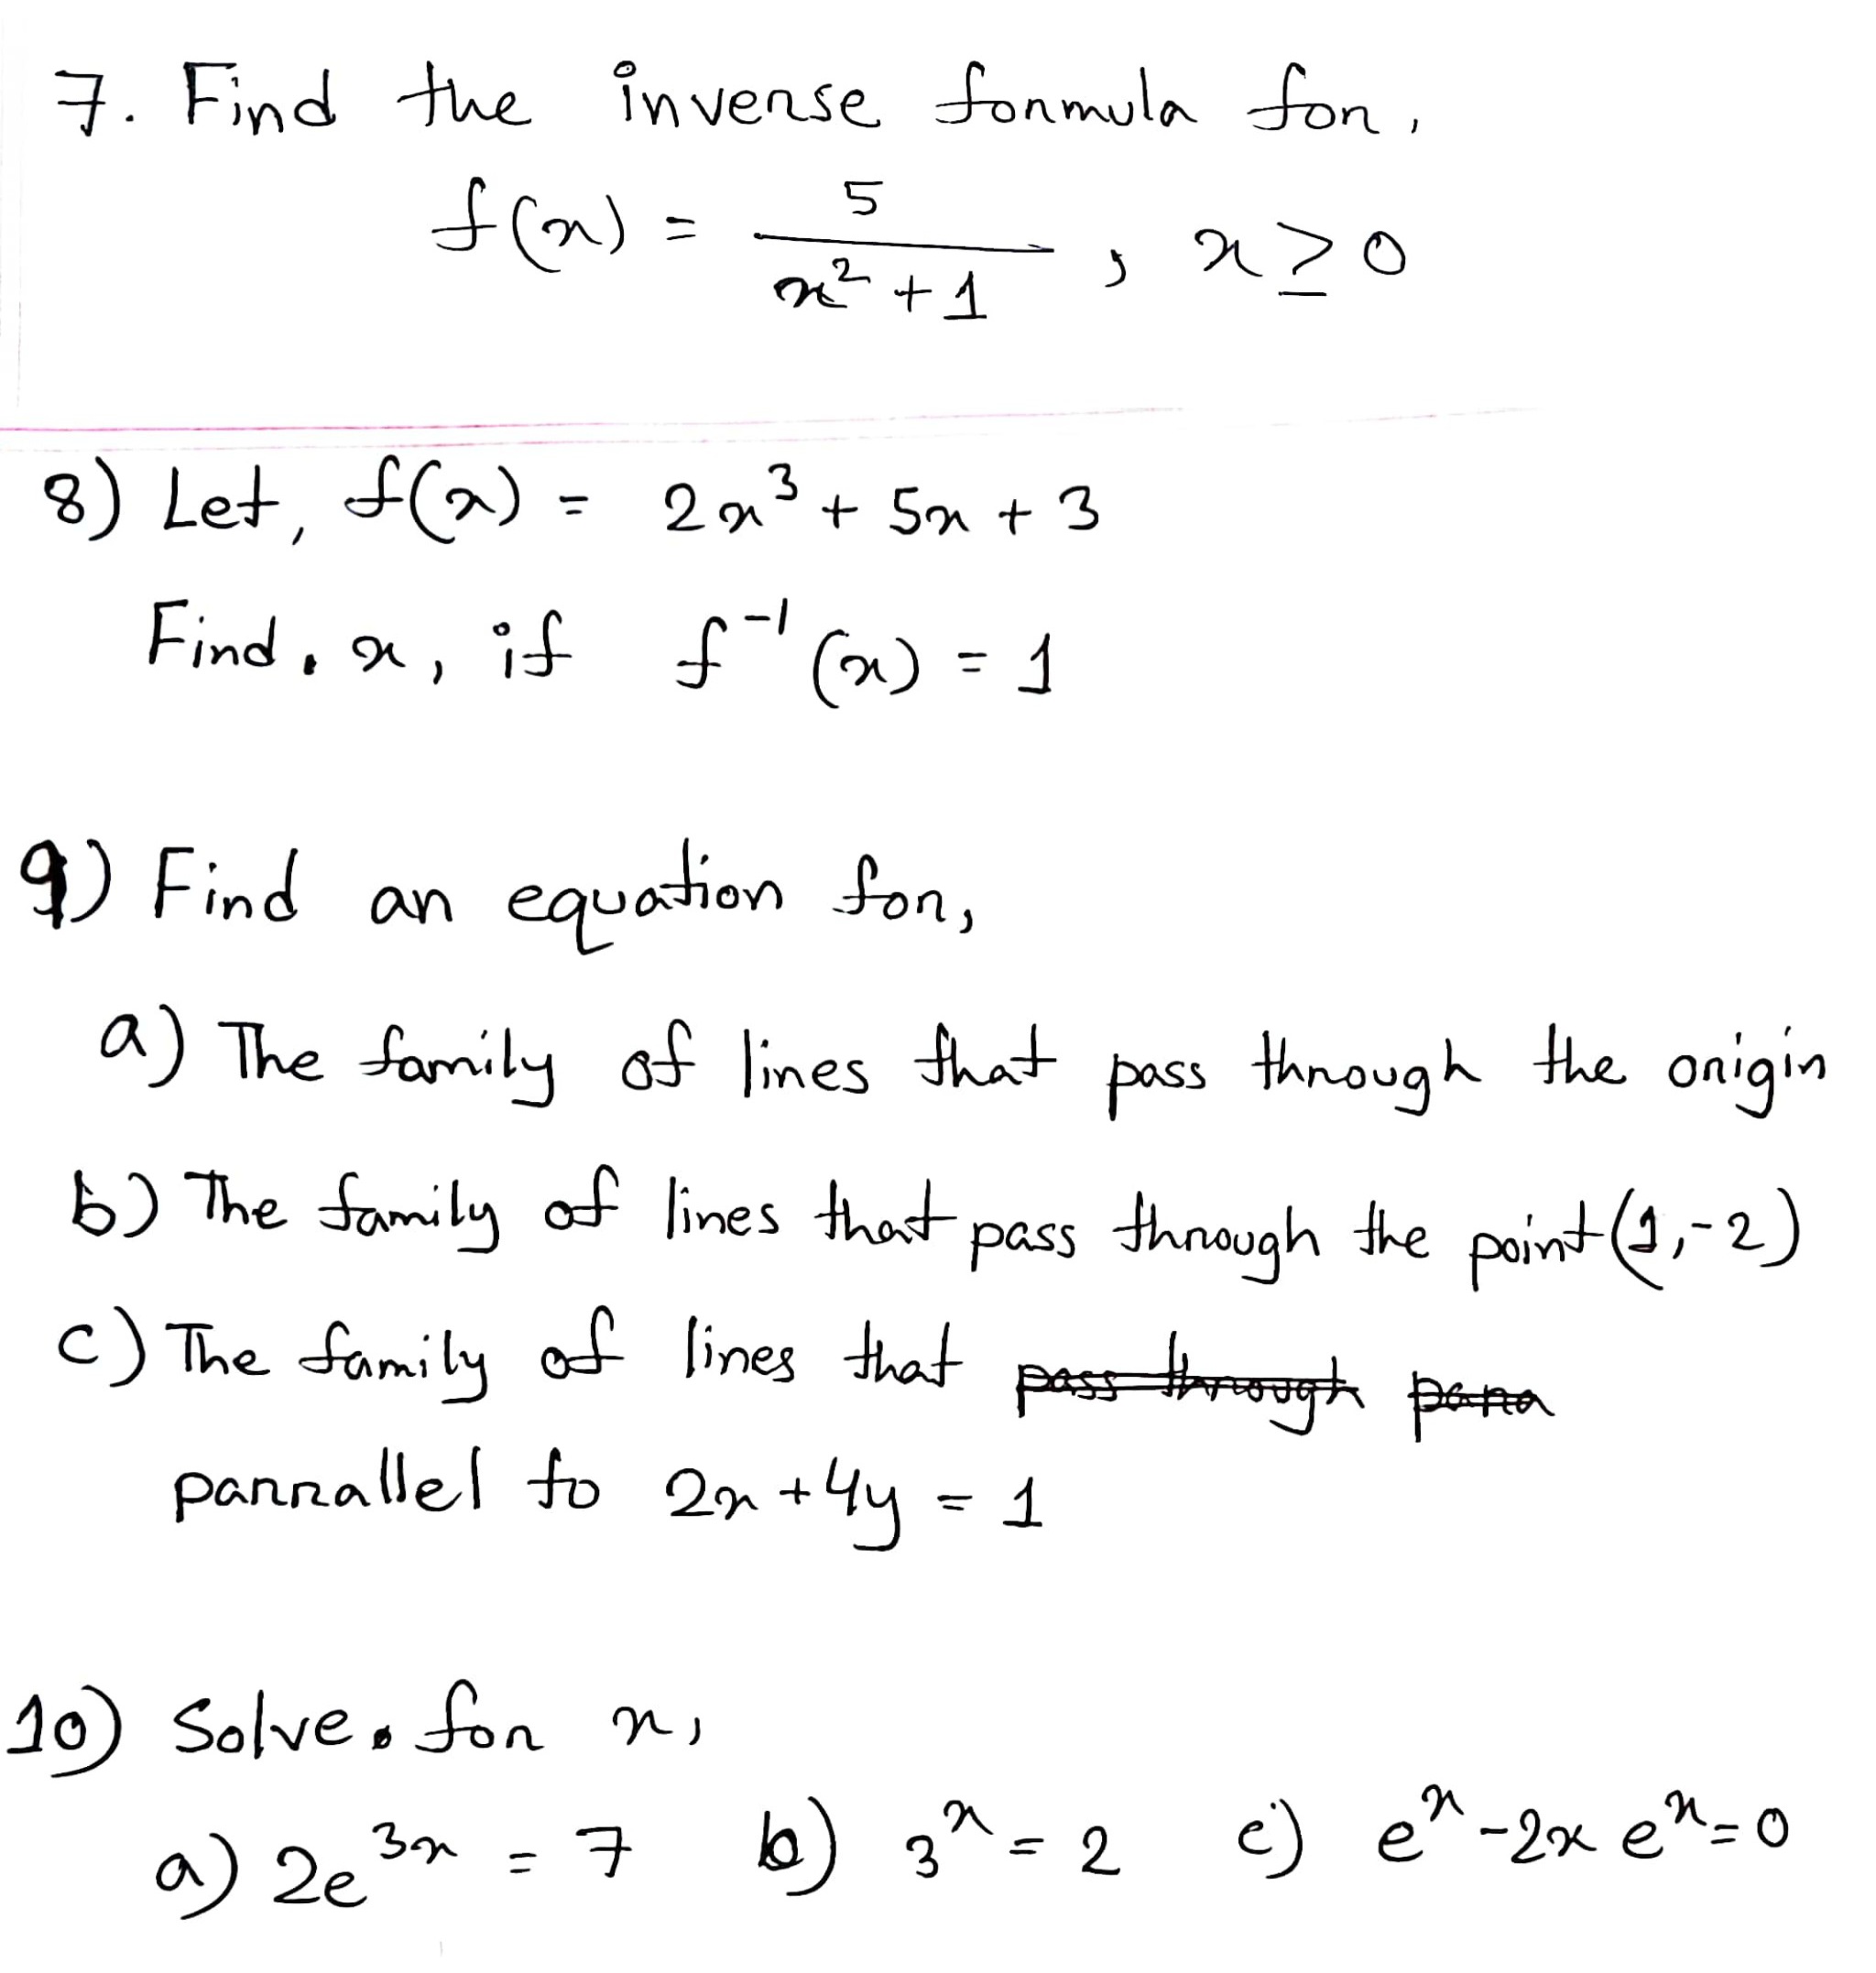 7. Find the inverse formula for,
f(x) = 5/(x² + 1) , x ≥ 0
8) Let, f(x) = 2x³ + 5x + 3
Find, x, if f⁻¹(x) = 1
9) Find an equation for,
a) The family of lines that pass through the origin
b) The family of lines that pass through the point (1,-2)
c) The family of lines that pass through para
parrallel to 2x + 4y = 1
10) Solve for x,
a) 2e³ˣ = 7 b) 3ˣ = 2 c) eˣ - 2x eˣ = 0